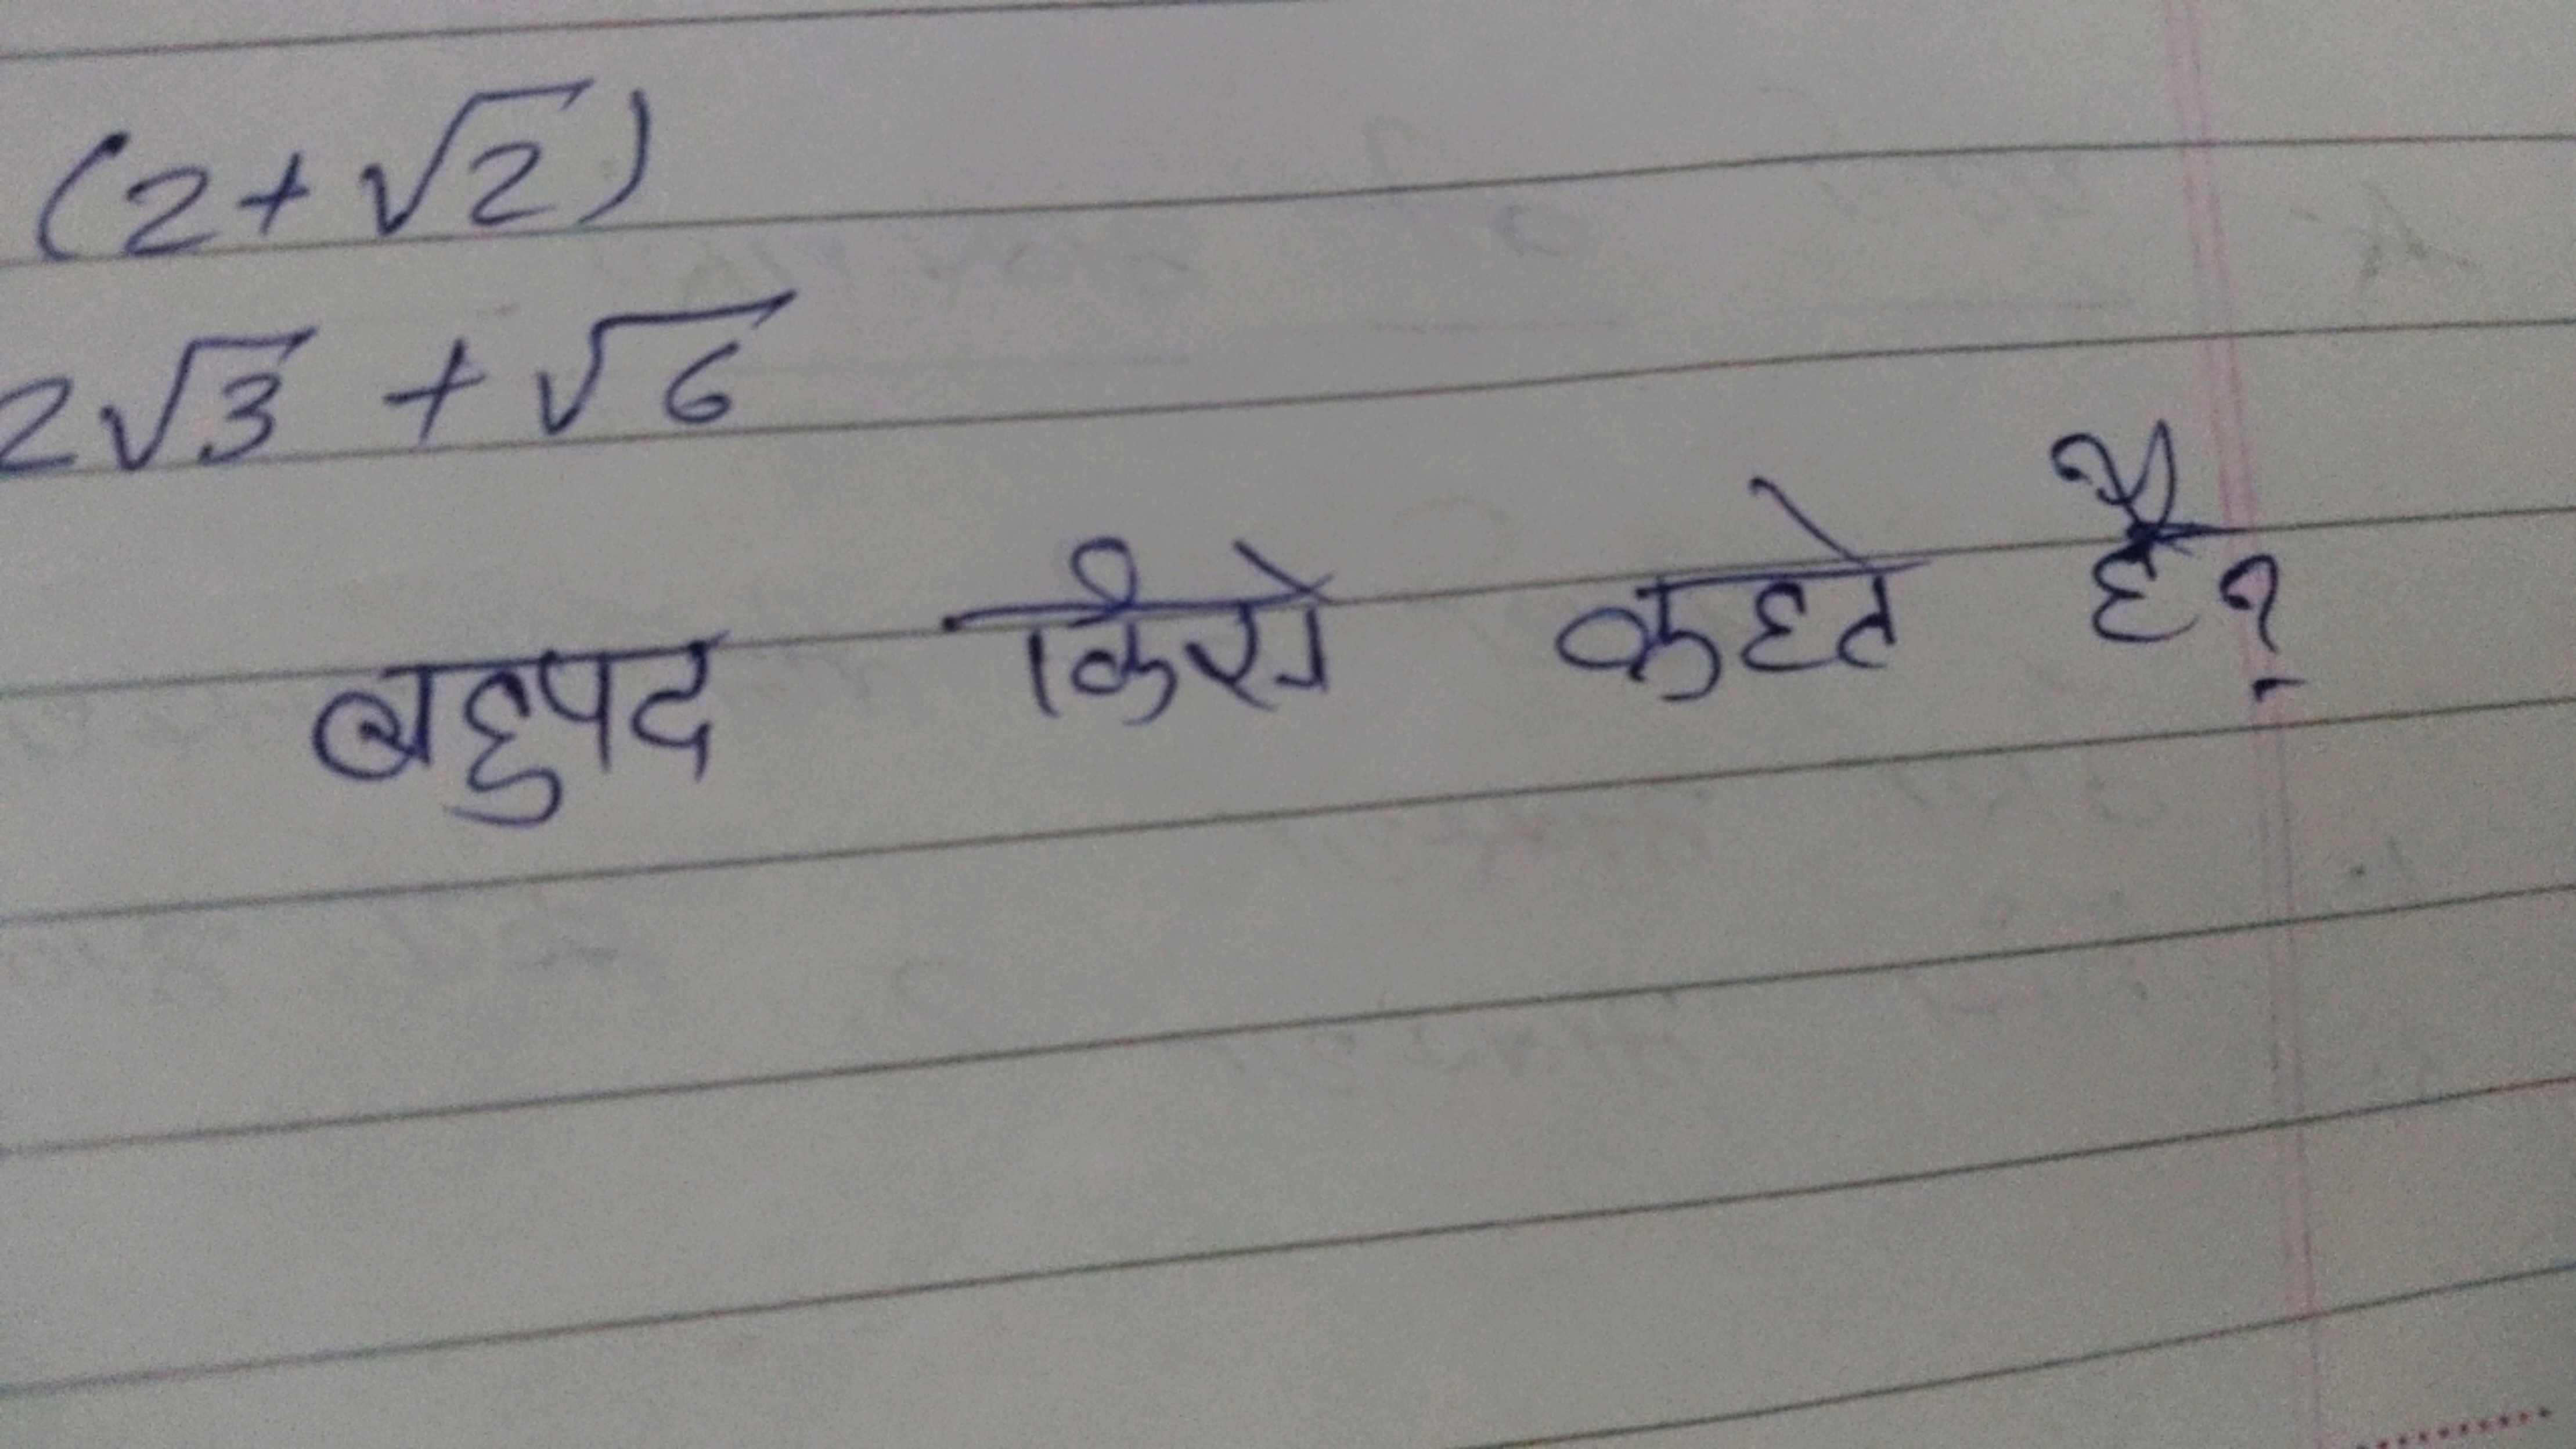 (2+√2)
2√3 + √6
बहुपद किसे कहते है?